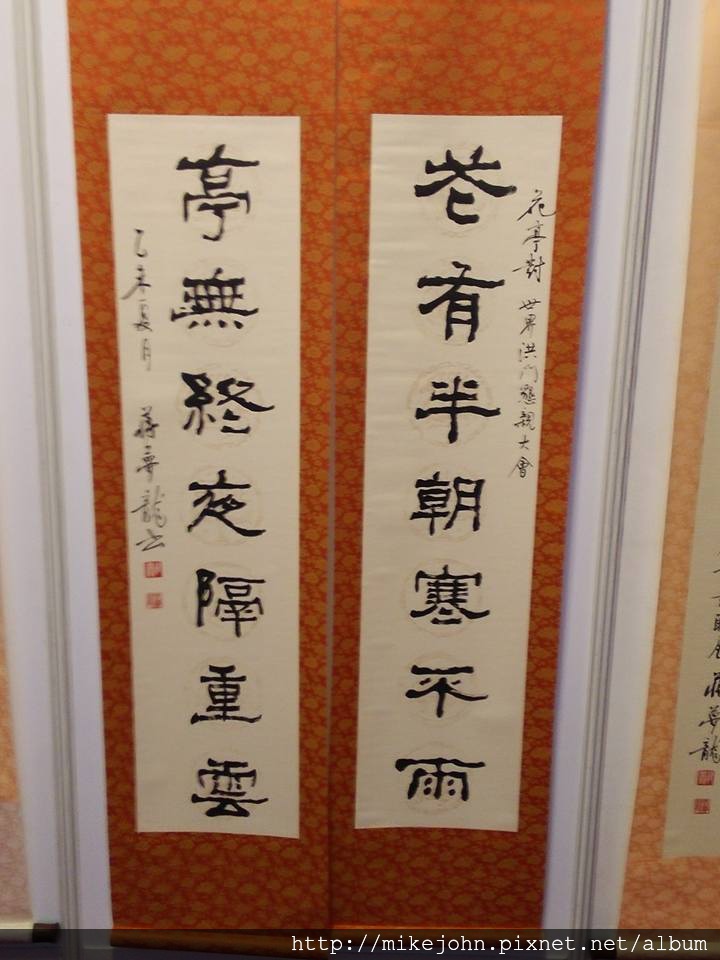 花亭對 世界洪門懇親大會
花有半朝寒不雨
亭無終夜隔重雲
乙未夏月 蔣夢龍书
蔣夢龍
http://mikejohn.pixnet.net/album